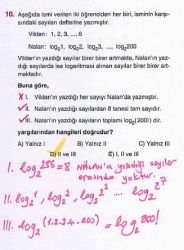 10. Aşağıda ismi verilen iki öğrenciden her biri, isminin karşı-
sındaki sayıları defterine yazmıştır.
Vildan: 1, 2, 3, ..., 8
Nalan: log₂1, log₂2, log₂3, ..., log₂200
Vildan'ın yazdığı sayılar birer birer artmakta, Nalan'ın yaz-
dığı sayılarda ise logaritması alınan sayılar birer birer art-
maktadır.
Buna göre,
X I. Vildan'ın yazdığı her sayıyı Nalan'da yazmıştır.
✓ II. Nalan'ın yazdığı sayılardan 8 tanesi tam sayıdır.
✓ III. Nalan'ın yazdığı sayıların toplamı log₂(200!) dir.
yargılarından hangileri doğrudur?
A) Yalnız I B) Yalnız II C) Yalnız III
D) II ve III E) I, II ve III
I. log₂256 = 8 Nalan'ın yazdığı sayılar
arasında yoktur.
II. log₂1, log₂2¹, log₂2² ... log₂2⁷
III. log₂(1.2.3.4...200) = log₂200!